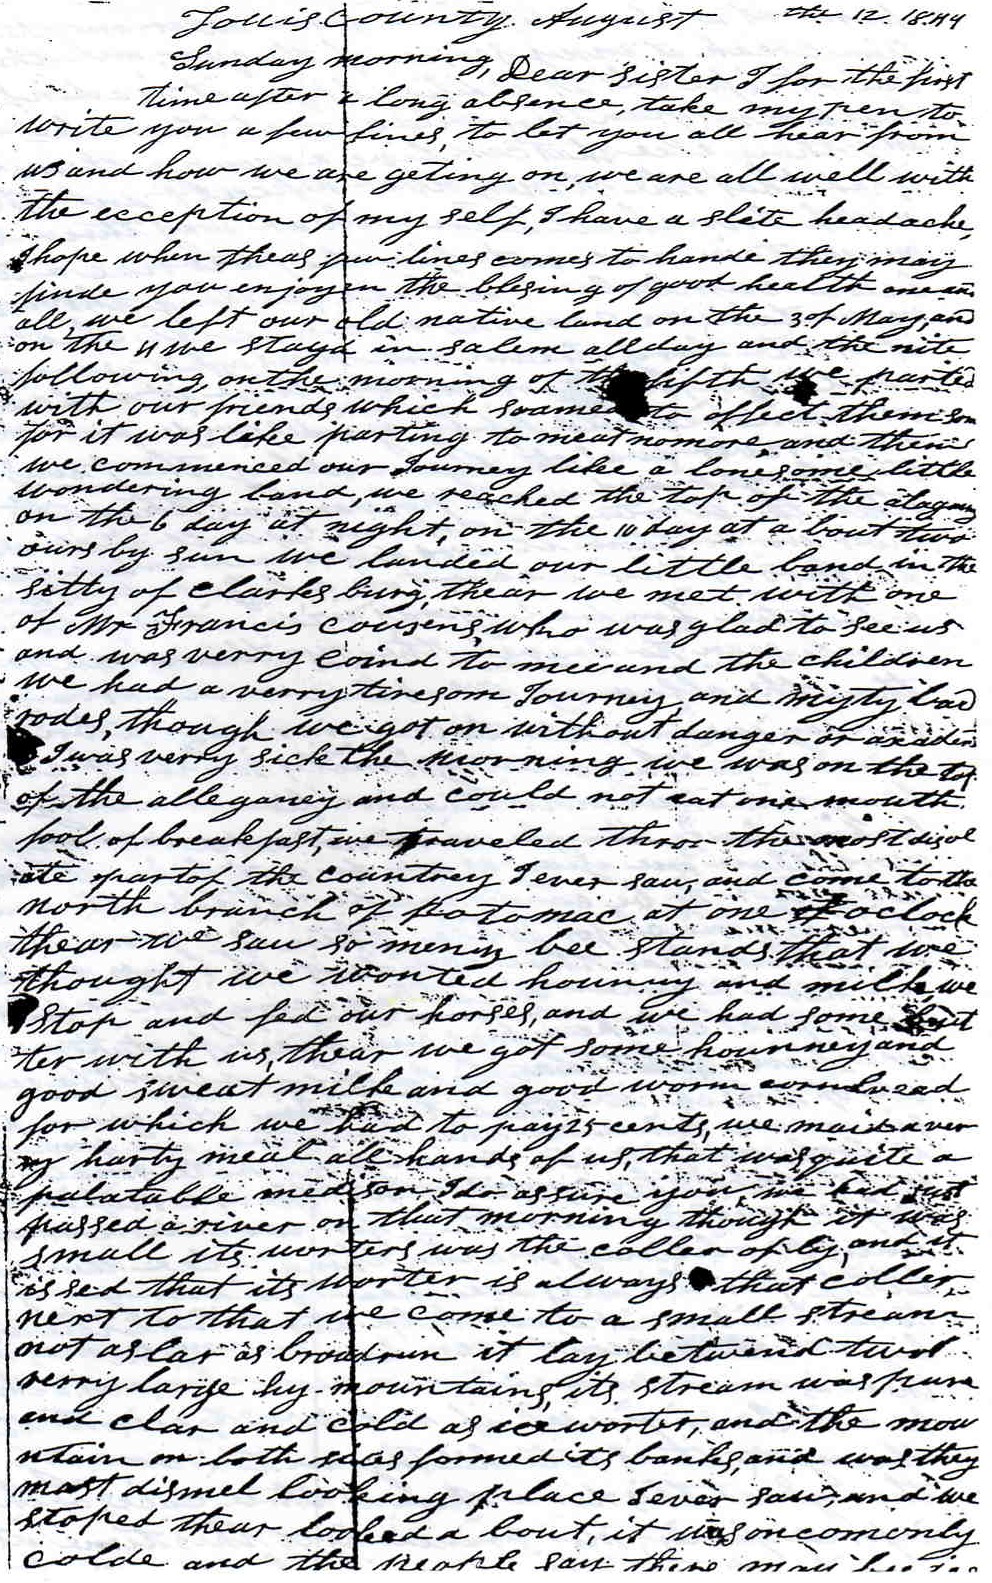 Louis County. August the 12. 1844
Sunday morning, Dear sister I for the first
time after a long absence, take my pen to
write you a few lines, to let you all hear from
us and how we are geting on, we are all well with
the exception of my self, I have a slite headache,
I hope when theas few lines comes to hande they may
finde you enjoyen the blesing of good health one an
all, we left our old native land on the 3 of May, and
on the 4 we stayd in salem all day and the nite
following, on the morning of the fifth we parted
with our friends which seamed to affect them som
for it was like parting to meat nomore and then
we commenced our Journey like a lonesome little
wondering band, we reached the top of the alagany
on the 6 day at night, on the 10 day at a bout two
ours by sun we landed our little band in the
sitty of Clarksburg, thear we met with one
of Mr Francis cousens, who was glad to see us
and was verry coind to mee and the children
we had a verry tiresom Journey, and myty bad
rodes, though we got on without danger or axadin
I was verry sick the morning we was on the top
of the allegancy and could not eat one mouth
fool of breakfast, we traveled throo the most disol
ate part of the countrey I ever saw, and come to the
north branch of Potomac at one oclock
thear we saw so meny bee stands that we
thought we wonted hounny and milk, we
Stop and fed our horses, and we had some but
ter with us, thear we got some hounney and
good sweat milk and good worm cornbread
for which we had to pay 25 cents, we maid a ver
ry harty meal all hands of us, that was quite a
palatable medison I do assure you, we had just
passed a river on that morning though it was
small its worters was the coller of ly, and it
is sed that its worter is always that coller,
next to that we come to a small stream
not as lar as broadrun it lay betwend two
verry large hy mountains, its stream was pure
and clar and cold as ice worter, and the mou
ntain on both sides formed its banks, and was they
most dismel looking place I ever saw, and we
stoped thear looked a bout, it was oncomonly
colde and the people saw there may be